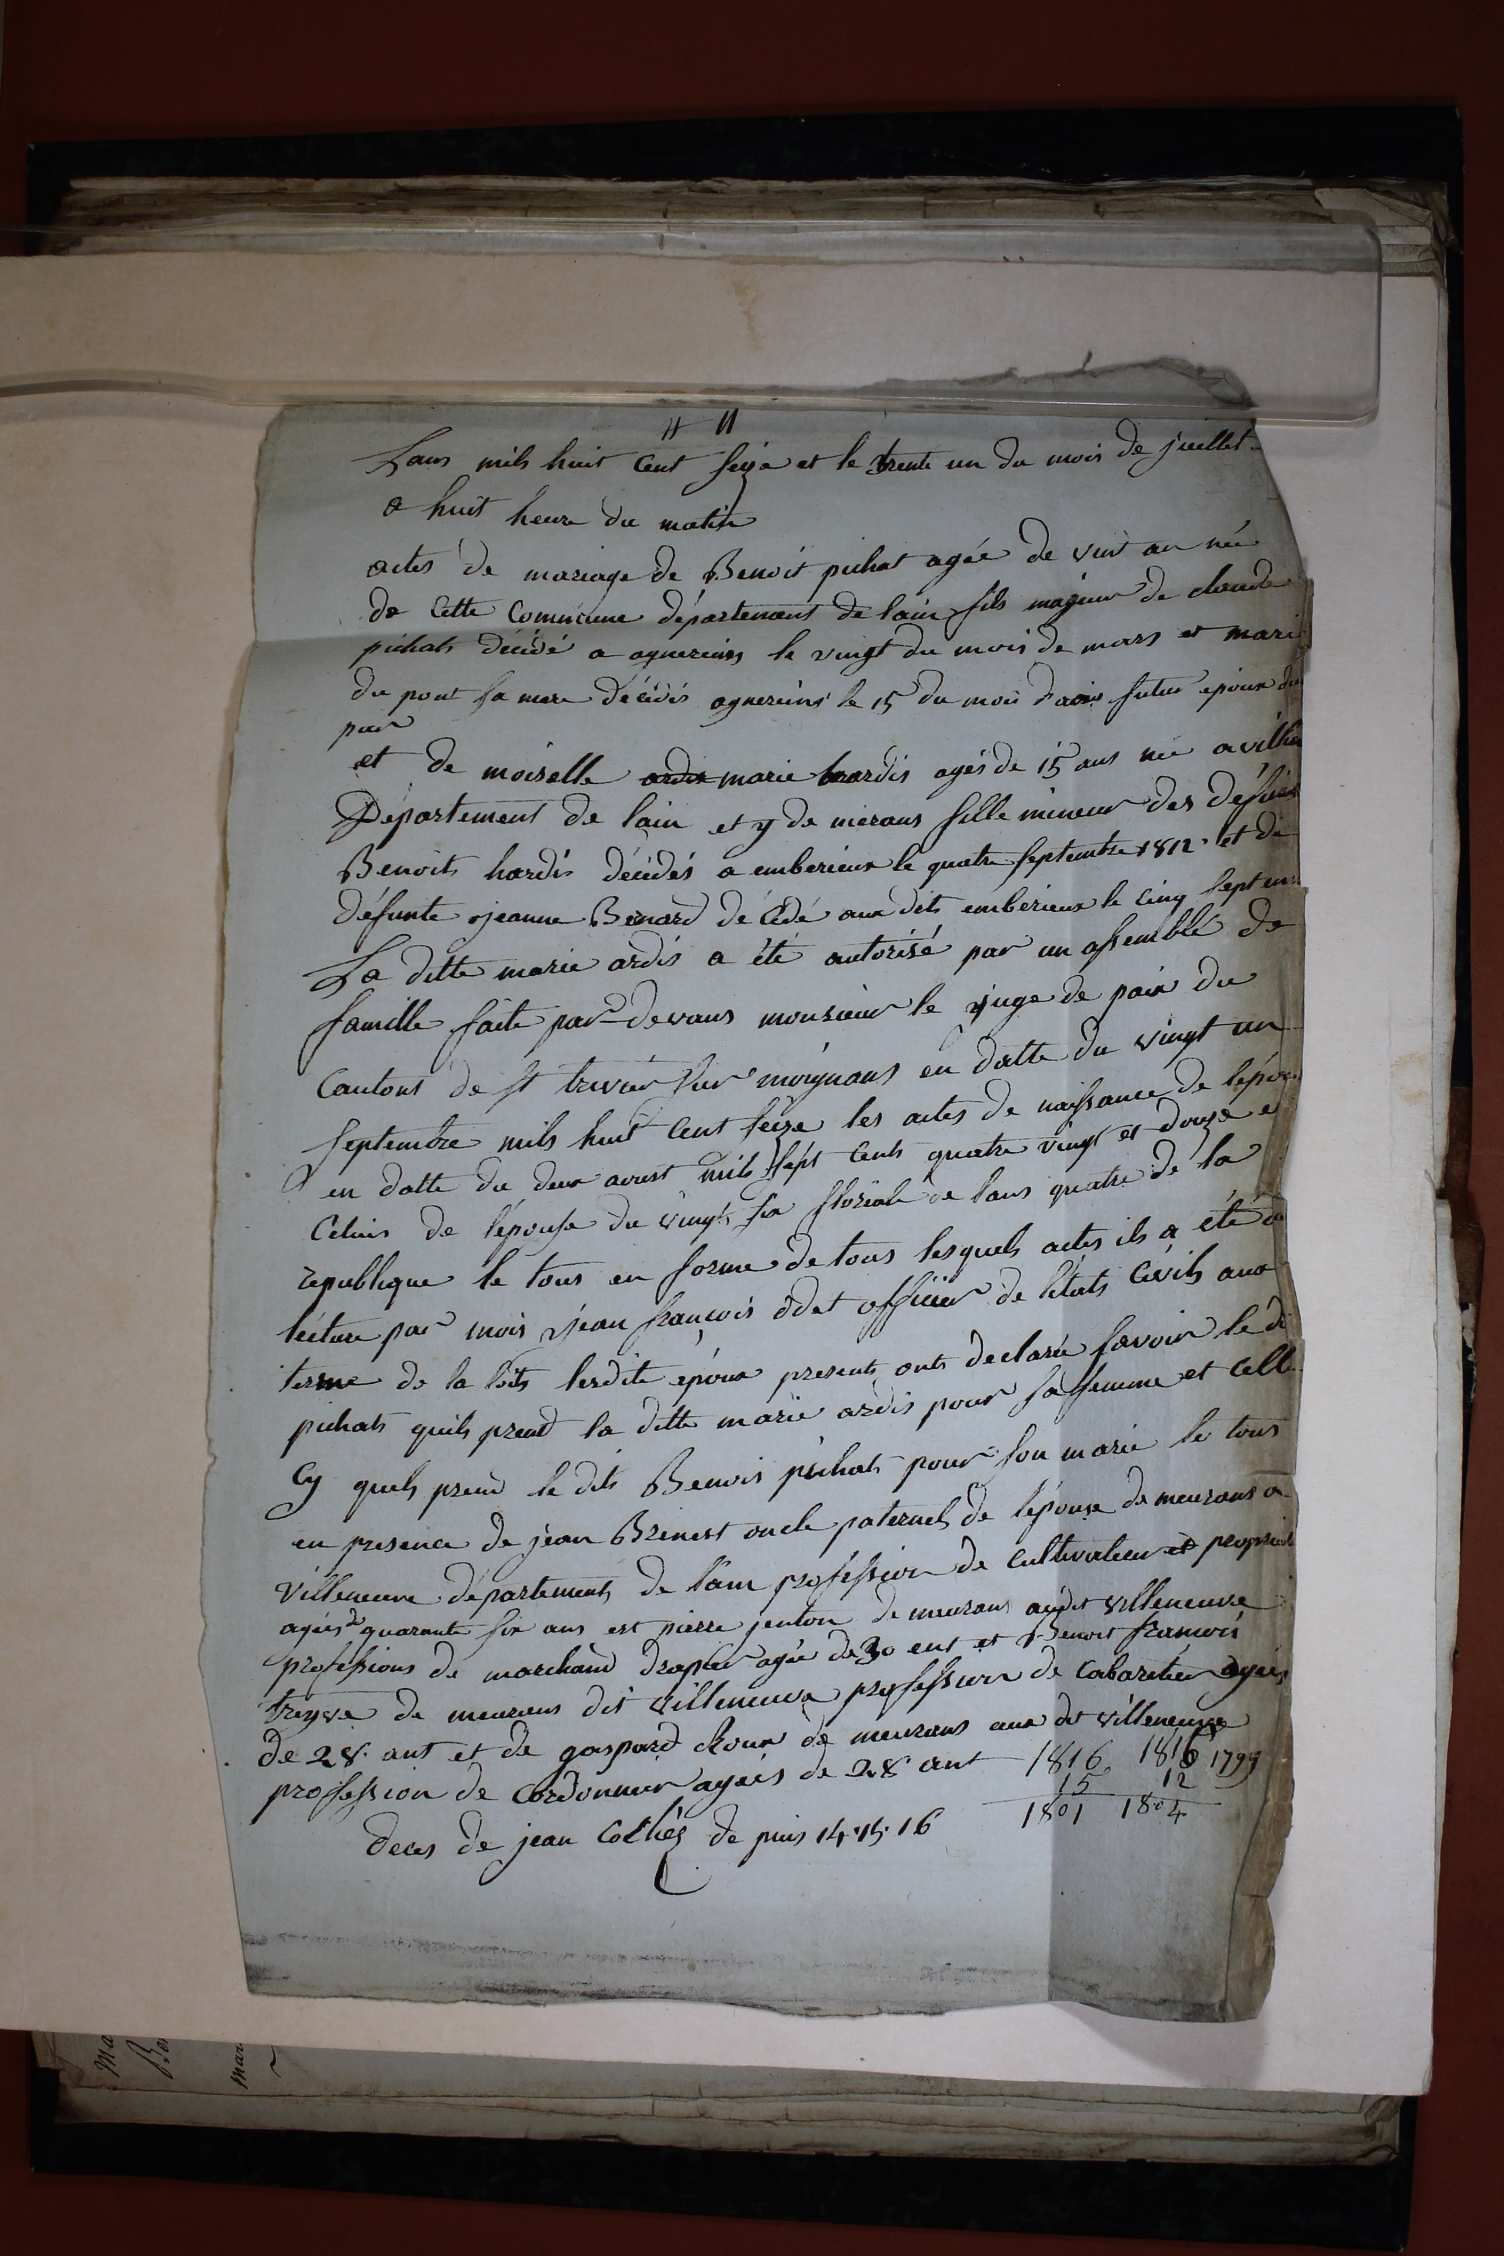 Lans mils huit Cent seize et le trente un du mois de juillet
a huit heure du matin
actes de mariage de Benoit pichat agée de vint an née
de Cette Commune département de lain fils majeur de claude
pichats décédé a agnereins le vingt du mois de mars et marie
du pont sa mere décédés agnereins le 15 du mois futur epoux
et de moiselle marie hardis agés de 15 ans née a
Département de lain et y de mérans fille mineur des
Benoits hardis décédés a emberieux le quatre septembre 1812 et de
défunte jeanne Benard dé Cédé aux dits emberieux le Cinq
La ditte marie ardis a été autorisé par un assemblé de
famille faite par devans monsieur le juge de paix du
Cantons de st trivier sur moignans en datte du vingt un
septembre mils huit Cent seize les actes de naissance de
en datte du deux avril mils sept Cents quatre vingt et douze e
Celuis de l'épouse du vingt six floréale de lans quatre de la
république le tous en forme de tous lesquels actes ils a été
lecture par mois jean françois odet officier de létats Civils aux
terme de la loits lesdite époux presents onts declarée savoir le
pichats quils prend la ditte marie ardis pour sa femme et Celle
Cy quels prend le dits Benois pichats pour son marie le tous
en presence de jean Brenest oncle paternels de lépouse de meurans a
Villeneuve départements de lain profession de Cultivateur et
agées de quarante six ans est pierre jenton de meurans audit Villeneuve
professions de marchand drapier agée de 30 ent et Benoit françois
treyve de meurans dit Villeneuve profession de Cabaretier agées
de 28 ant et de gaspard Roux de meurans aux dit villeneuve
profession de Cordonnier agées de 28 ant 1816 1816 1799
15 12
1801 1804
deces de jean Cothés de puis 14.15.16